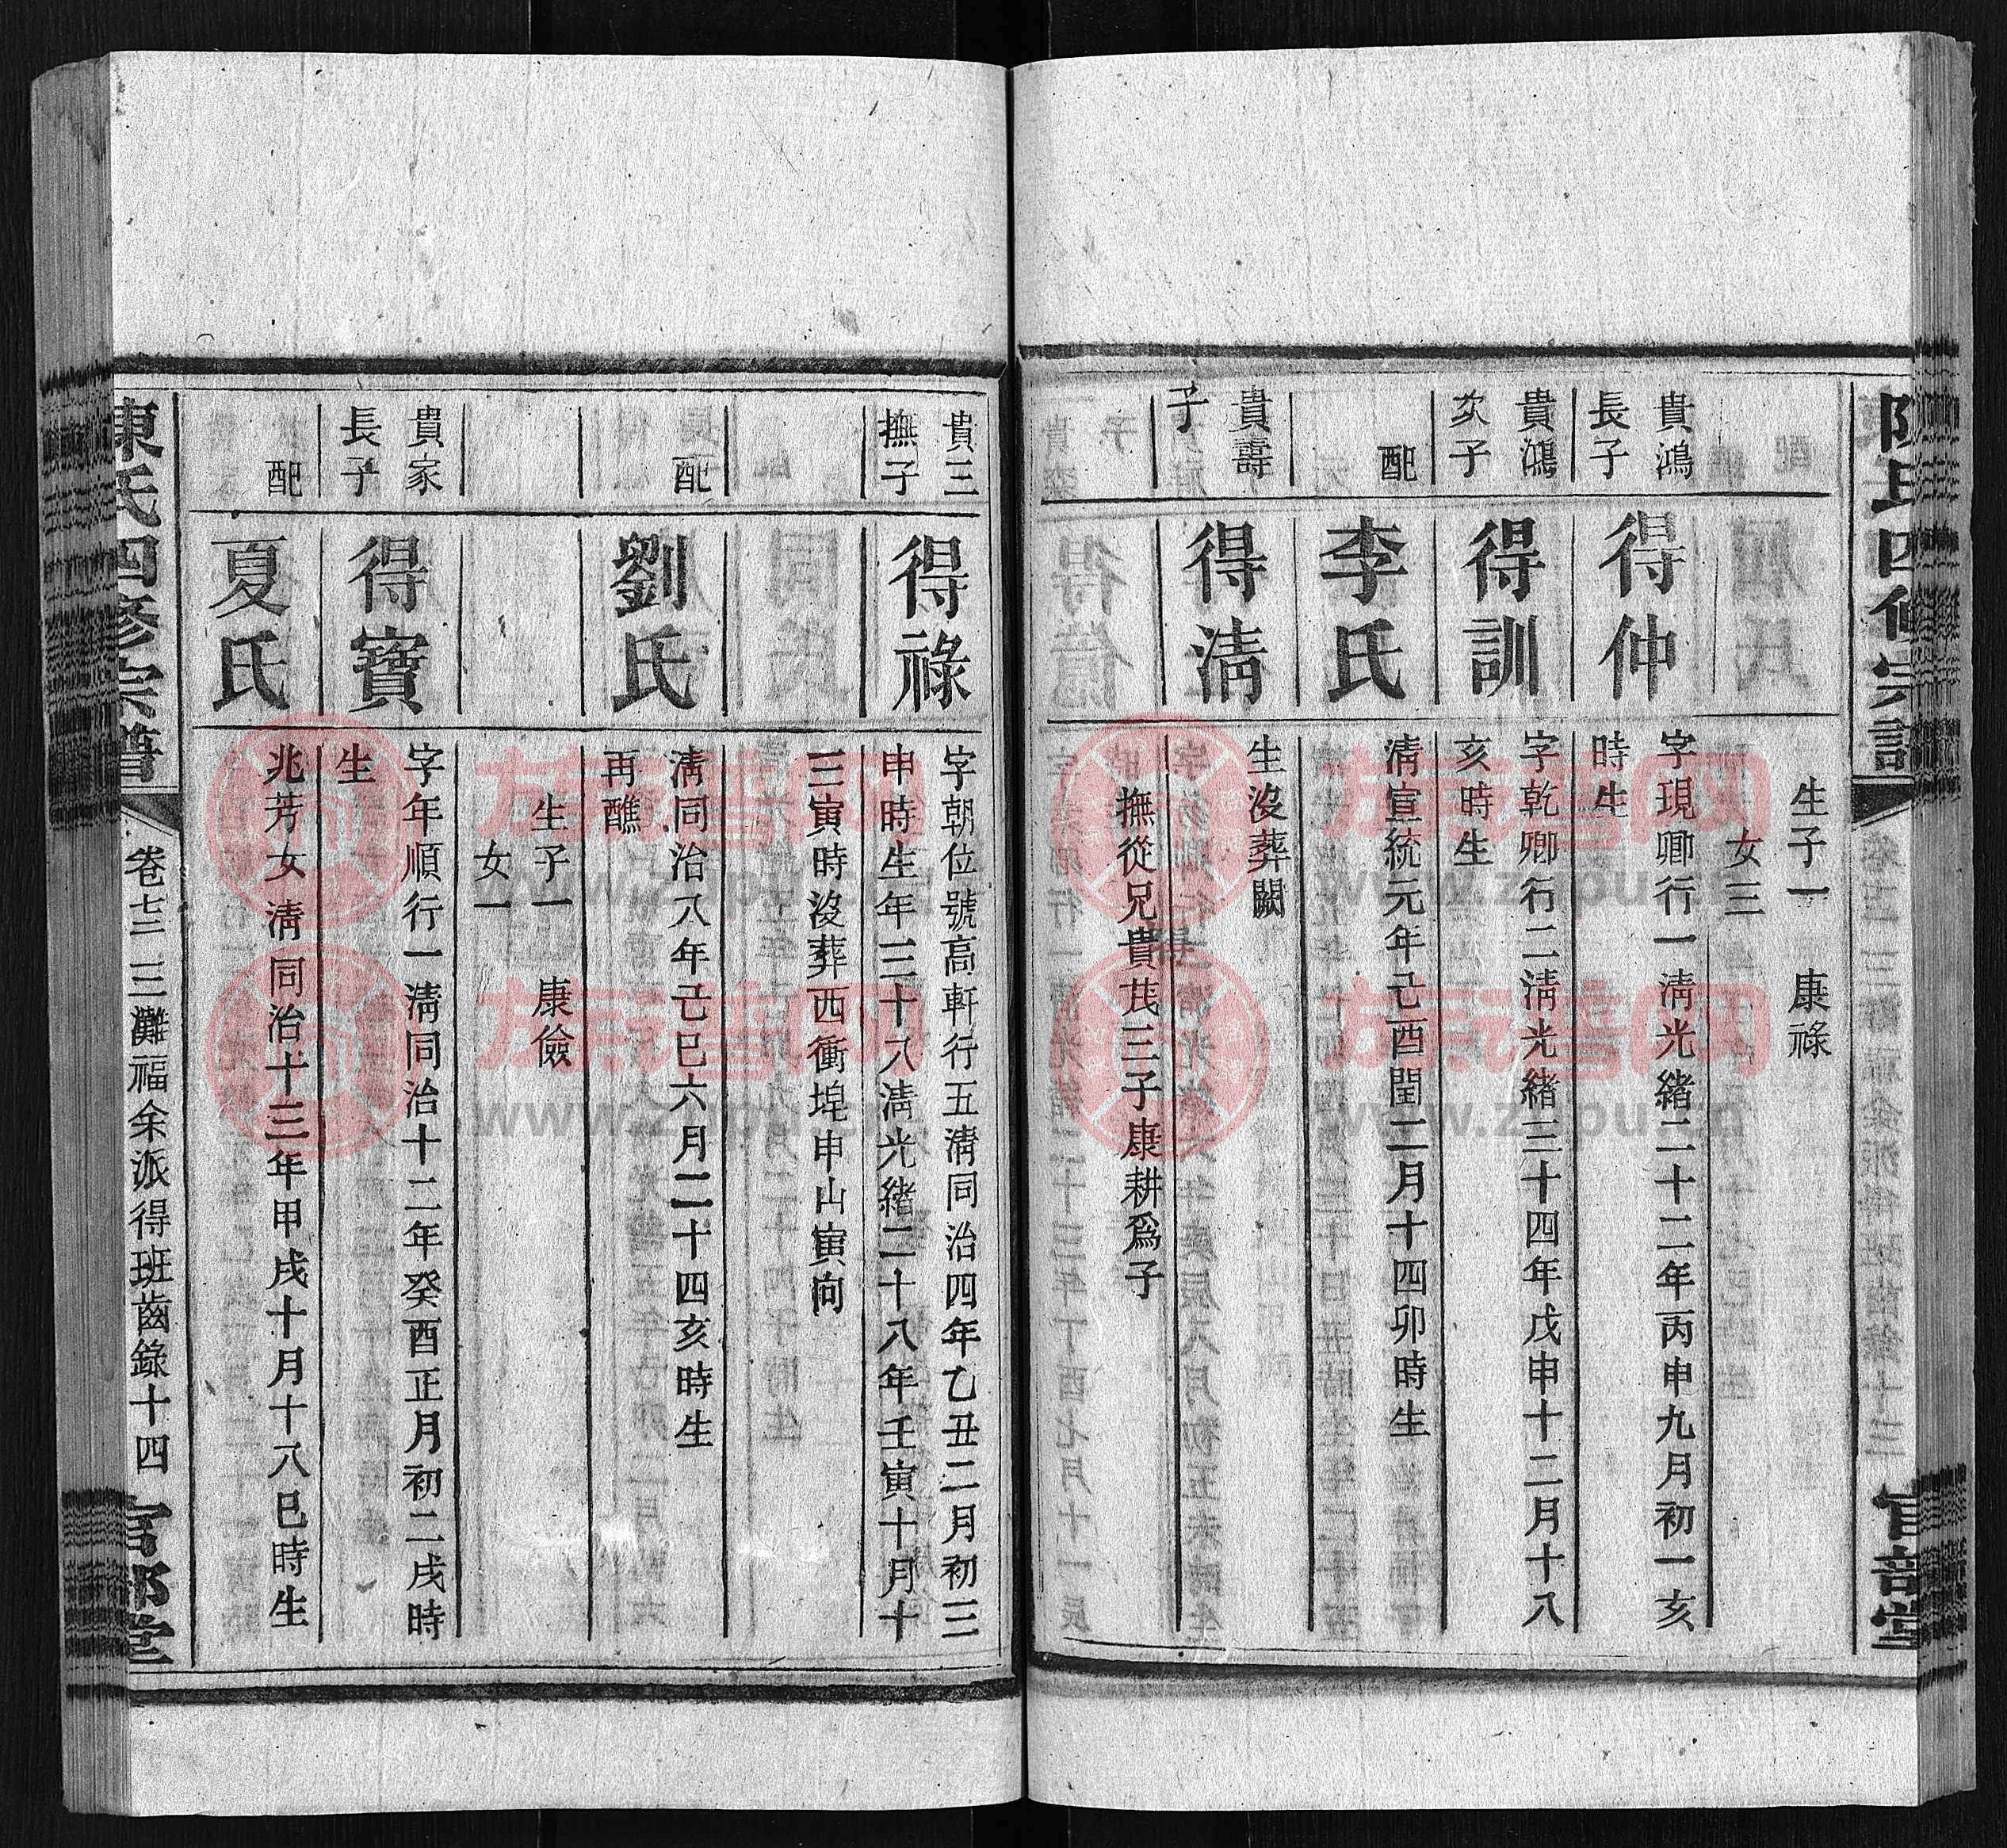 陳氏四修宗譜
官部堂
生子一　康祿
女三
貴鴻
長子
得仲
字現卿行一清光緒二十二年丙申九月初一亥
時生
貴鴻
次子
得訓
字乾卿行二清光緒三十四年戊申十二月十八
亥時生
配
李氏
清宣統元年己酉閏二月十四卯時生
貴壽
子
得清
生沒葬闕
撫從兄貴茂三子康耕爲子
貴三
撫子
得祿
字朝位號高軒行五清同治四年乙丑二月初三
申時生年三十八清光緒二十八年壬寅十月十
三寅時沒葬西衝埠申山寅向
配
劉氏
清同治八年己巳六月二十四亥時生
再醮
生子一　康儉
女一
貴家
長子
得寶
字年順行一清同治十二年癸酉正月初二戌時
生
配
夏氏
兆芳女清同治十三年甲戌十月十八巳時生
陳氏四修宗譜
卷七三 三灘福余派得班齒錄十四
官部堂
族譜网
www.zupu.cn
族譜网
www.zupu.cn
族譜网
www.zupu.cn
族譜网
www.zupu.cn